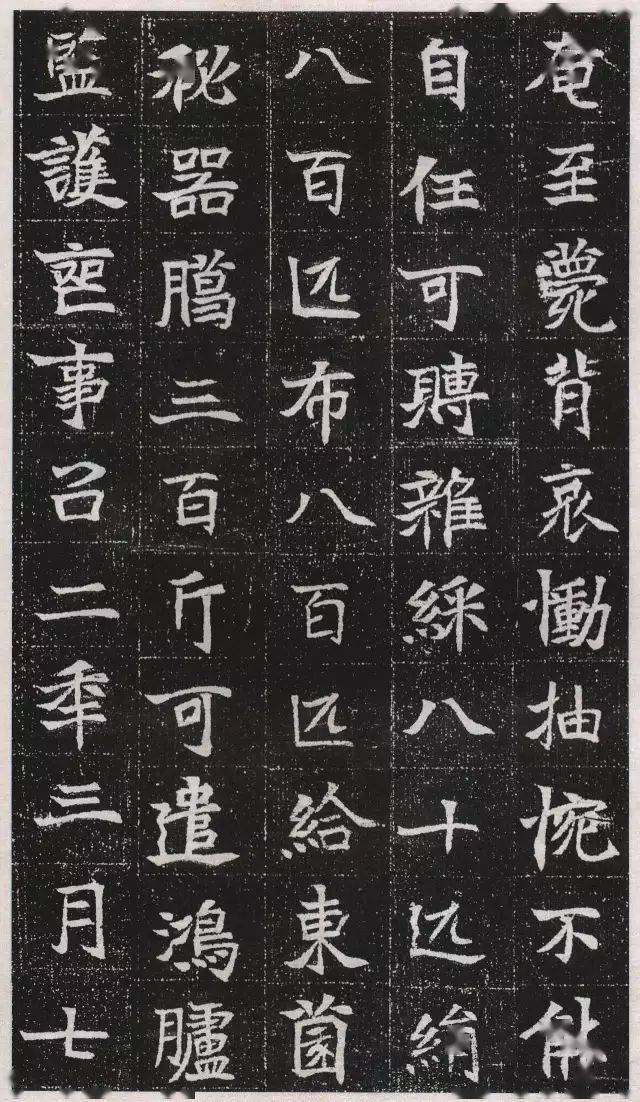 奄至薨背哀慟抽惋不能
自任可賻雜綵八十匹絹
八百匹布八百匹給東薗
秘器臈三百斤可遣鴻臚
監護喪事以二年三月七